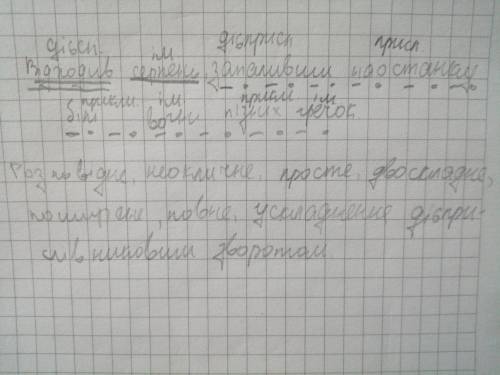 дієсл. ім дієприсл присл.
Відходив серпень, запаливши наостанку
прикм. ім прикм ім
білі вогні пізніх гречок
Розповідне, неокличне, просте, двоскладне,
поширене, повне, ускладнене дієпри-
слівниковим зворотом.